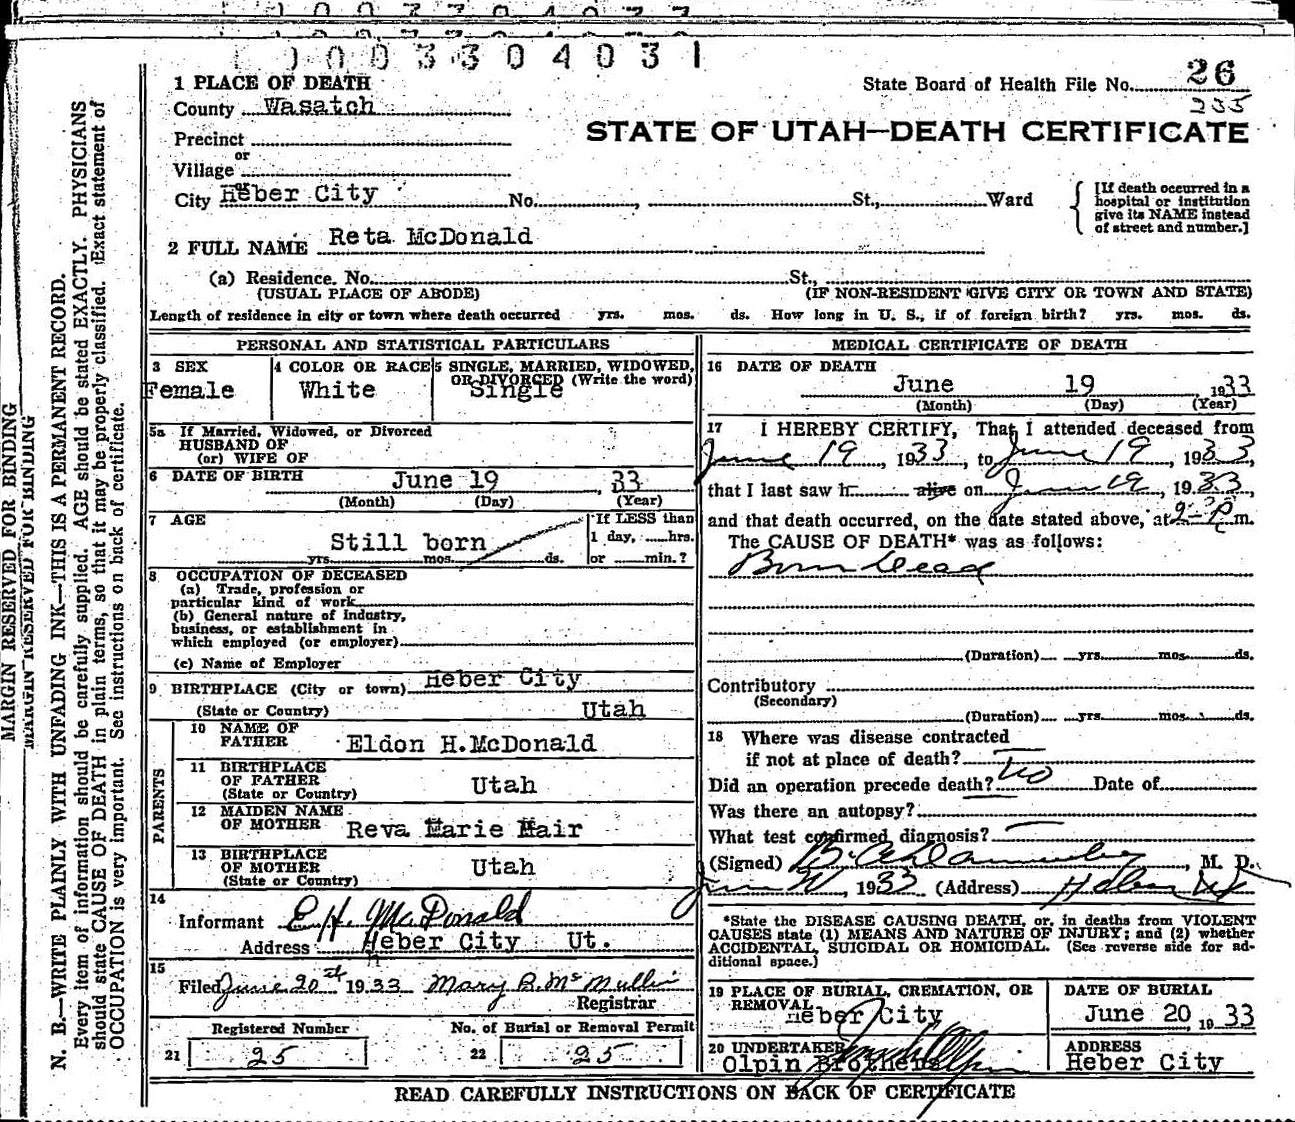 0003304031
1 PLACE OF DEATH
State Board of Health File No. 26
County Wasatch
235
STATE OF UTAH—DEATH CERTIFICATE
Precinct
or
Village
or
City Heber City No. , St., Ward
[If death occurred in a hospital or institution give its NAME instead of street and number.]
2 FULL NAME Reta McDonald
(a) Residence. No. St.,
(USUAL PLACE OF ABODE) (IF NON-RESIDENT GIVE CITY OR TOWN AND STATE)
Length of residence in city or town where death occurred yrs. mos. ds. How long in U. S., if of foreign birth? yrs. mos. ds.
PERSONAL AND STATISTICAL PARTICULARS
3 SEX
Female
4 COLOR OR RACE
White
5 SINGLE, MARRIED, WIDOWED,
OR DIVORCED (Write the word)
Single
5a If Married, Widowed, or Divorced
HUSBAND OF
(or) WIFE OF
6 DATE OF BIRTH June 19, 33
(Month) (Day) (Year)
7 AGE
Still born
yrs. mos. ds.
If LESS than
1 day, hrs.
or min.?
8 OCCUPATION OF DECEASED
(a) Trade, profession or
particular kind of work
(b) General nature of industry,
business, or establishment in
which employed (or employer)
(c) Name of Employer
9 BIRTHPLACE (City or town) Heber City
(State or Country) Utah
PARENTS
10 NAME OF
FATHER Eldon H.McDonald
11 BIRTHPLACE
OF FATHER
(State or Country) Utah
12 MAIDEN NAME
OF MOTHER Reva Marie Hair
13 BIRTHPLACE
OF MOTHER
(State or Country) Utah
14
Informant E H McDonald
Address Heber City Ut.
15
Filed June 20th 1933 Mary B. McMullin
Registrar
Registered Number
21 25
No. of Burial or Removal Permit
22 25
MEDICAL CERTIFICATE OF DEATH
16 DATE OF DEATH
June 19 1933
(Month) (Day) (Year)
17 I HEREBY CERTIFY, That I attended deceased from
June 19, 1933, to June 19, 1933,
that I last saw h alive on June 19, 1933,
and that death occurred, on the date stated above, at 2 P.m.
The CAUSE OF DEATH* was as follows:
Born dead
(Duration) yrs. mos. ds.
Contributory
(Secondary)
(Duration) yrs. mos. ds.
18 Where was disease contracted
if not at place of death?
Did an operation precede death? No Date of
Was there an autopsy?
What test confirmed diagnosis?
(Signed) , M. D.
June , 1933 (Address) Heber Ut
*State the DISEASE CAUSING DEATH, or, in deaths from VIOLENT
CAUSES state (1) MEANS AND NATURE OF INJURY; and (2) whether
ACCIDENTAL, SUICIDAL OR HOMICIDAL. (See reverse side for ad-
ditional space.)
19 PLACE OF BURIAL, CREMATION, OR
REMOVAL
Heber City
DATE OF BURIAL
June 20, 1933
20 UNDERTAKER
Olpin Brothers
ADDRESS
Heber City
READ CAREFULLY INSTRUCTIONS ON BACK OF CERTIFICATE
MARGIN RESERVED FOR BINDING
MARGIN RESERVED FOR BINDING
N. B.—WRITE PLAINLY WITH UNFADING INK—THIS IS A PERMANENT RECORD.
Every item of information should be carefully supplied. AGE should be stated EXACTLY. PHYSICIANS
should state CAUSE OF DEATH in plain terms, so that it may be properly classified. Exact statement of
OCCUPATION is very important. See instructions on back of certificate.